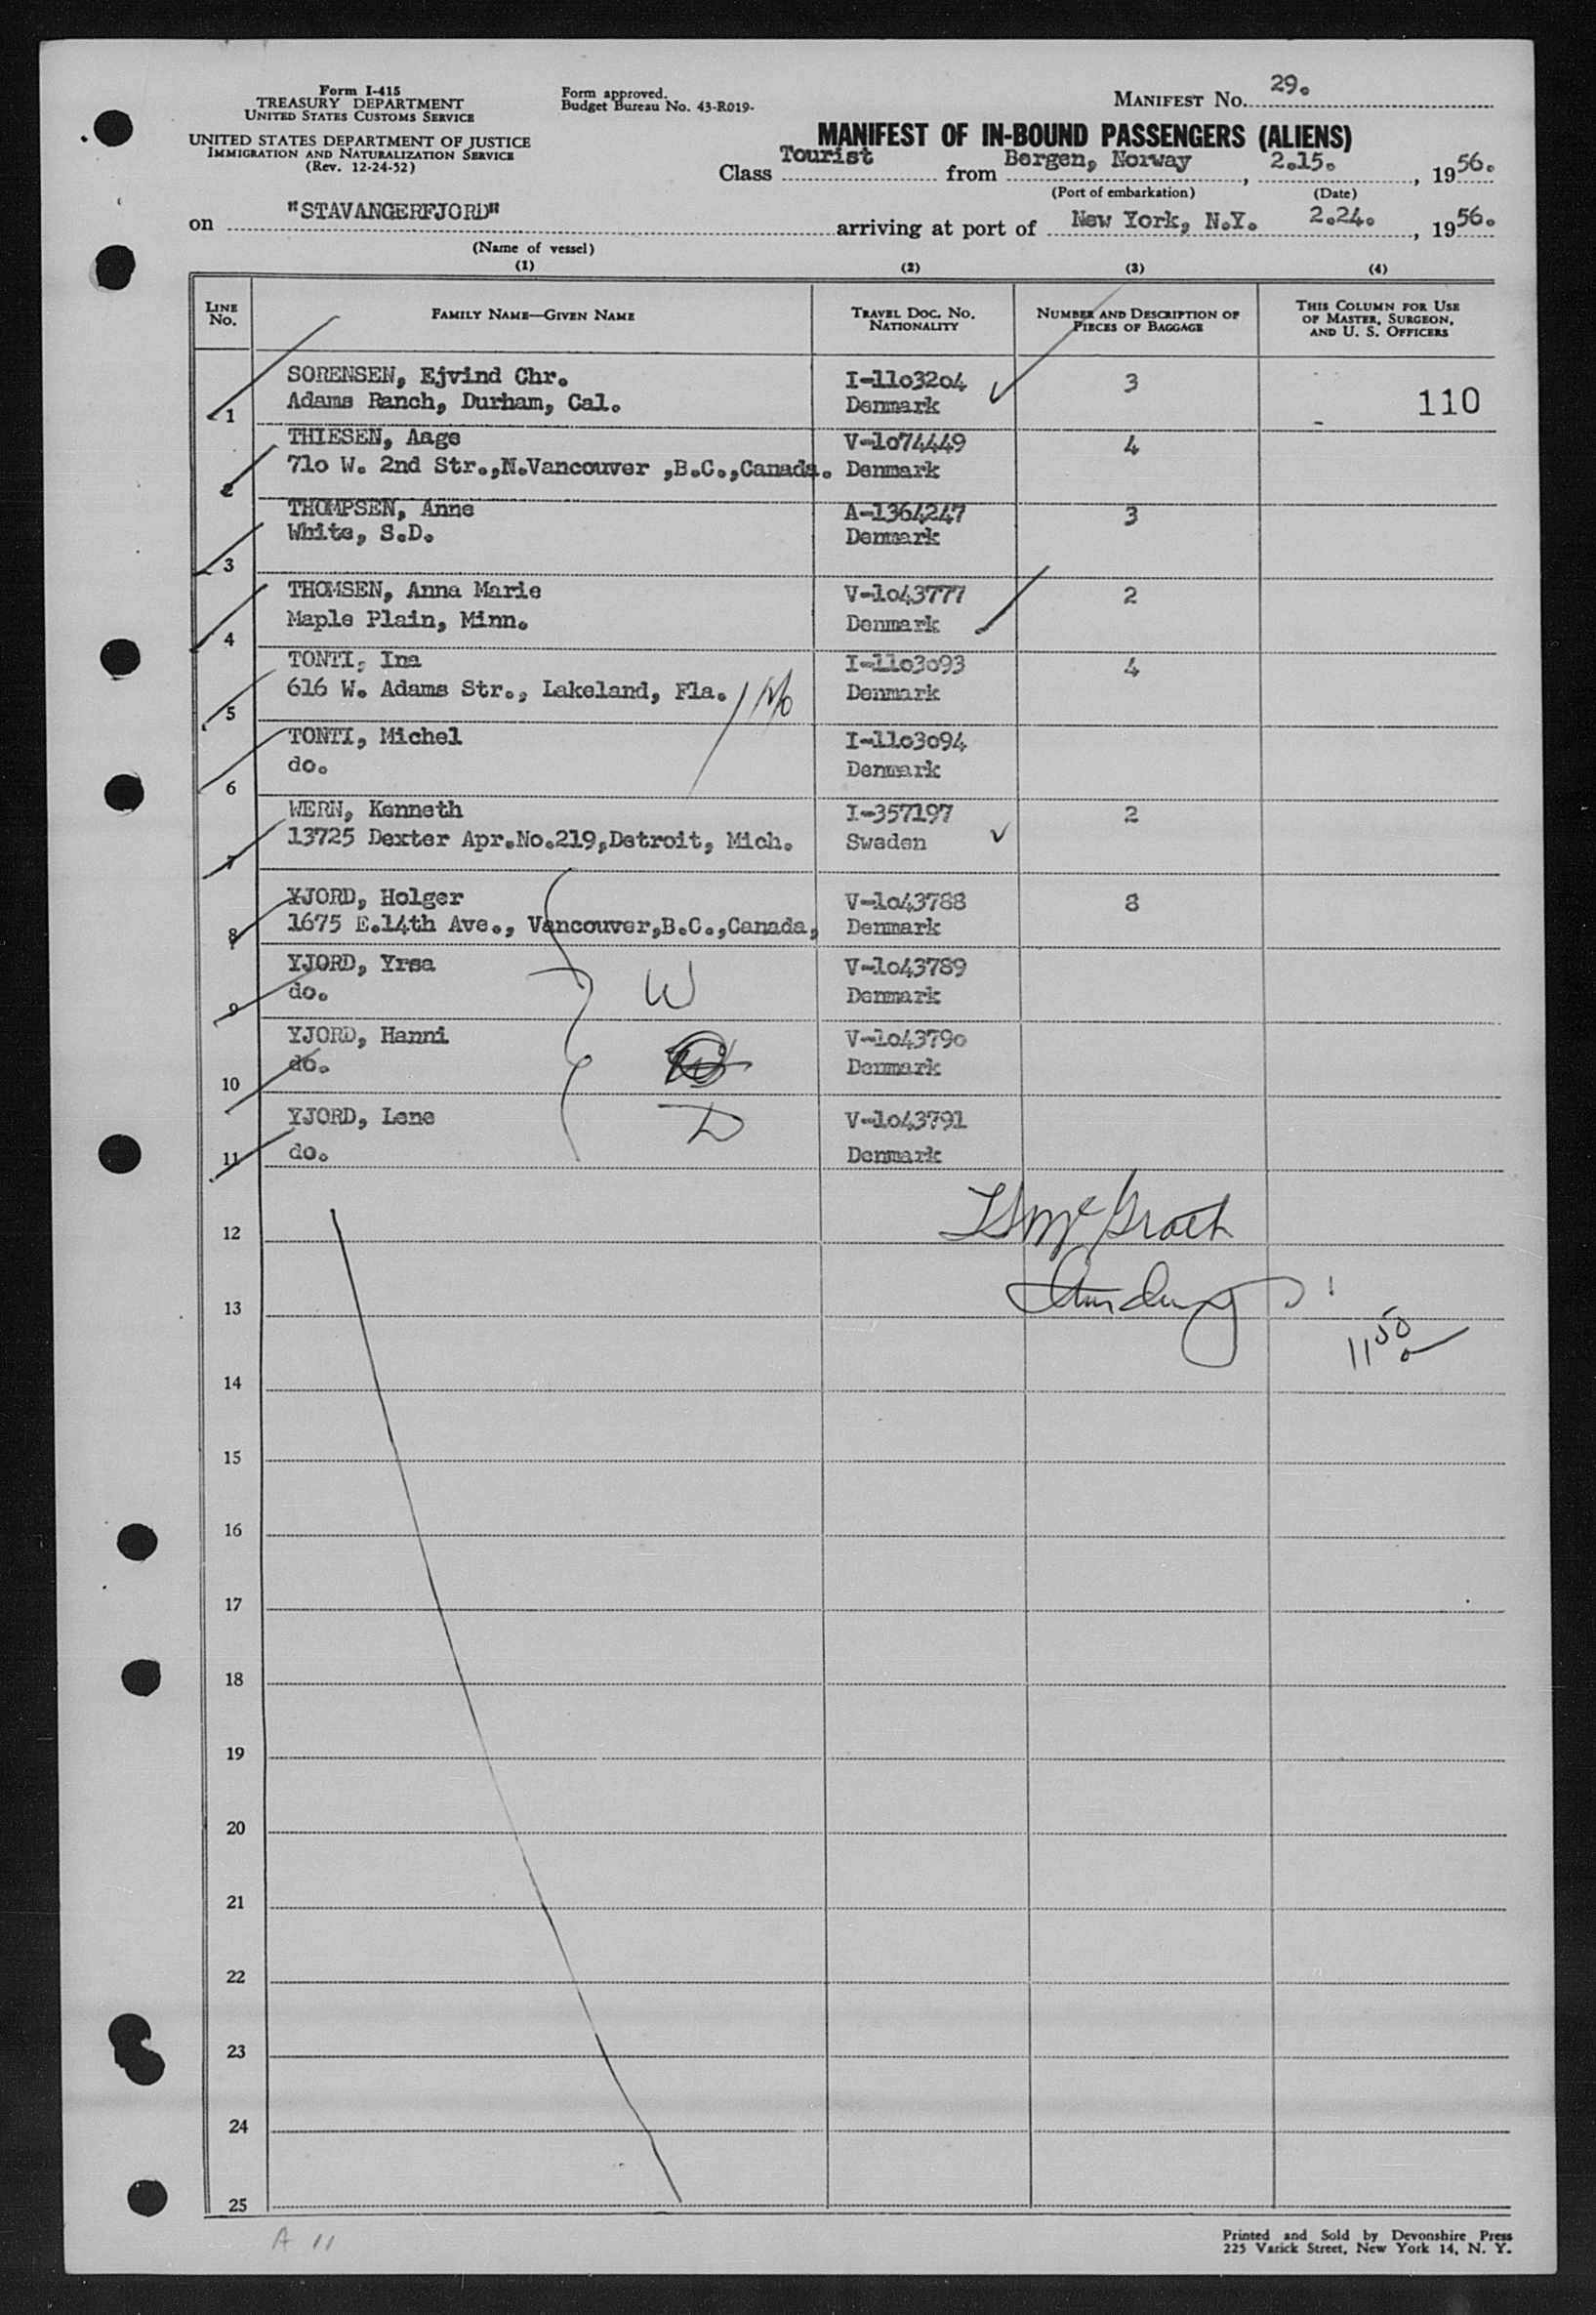 Form I-415
TREASURY DEPARTMENT
UNITED STATES CUSTOMS SERVICE
UNITED STATES DEPARTMENT OF JUSTICE
IMMIGRATION AND NATURALIZATION SERVICE
(Rev. 12-24-52)
Form approved.
Budget Bureau No. 43-R019-
MANIFEST No. 29.
MANIFEST OF IN-BOUND PASSENGERS (ALIENS)
Class Tourist from Bergen, Norway, 2.15., 1956.
(Port of embarkation) (Date)
on "STAVANGERFJORD" arriving at port of New York, N.Y. 2.24., 1956.
(Name of vessel)
(1) (2) (3) (4)
LINE No. FAMILY NAME—GIVEN NAME TRAVEL DOC. No. NATIONALITY NUMBER AND DESCRIPTION OF PIECES OF BAGGAGE THIS COLUMN FOR USE OF MASTER, SURGEON, AND U. S. OFFICERS
SORENSEN, Ejvind Chr. I-11o32o4 3
1 Adams Ranch, Durham, Cal. Denmark 110
THIESEN, Aage V-1o74449 4
2 71o W. 2nd Str.,N.Vancouver ,B.C.,Canada. Denmark
THOMPSEN, Anne A-1364247 3
White, S.D. Denmark
3
THOMSEN, Anna Marie V-1o43777 2
4 Maple Plain, Minn. Denmark
TONTI, Ina I-11o3o93 4
5 616 W. Adams Str., Lakeland, Fla. Denmark
TONTI, Michel I-11o3o94
6 do. Denmark
WERN, Kenneth I-357197 2
7 13725 Dexter Apr.No.219,Detroit, Mich. Sweden
YJORD, Holger V-1o43788 8
8 1675 E.14th Ave., Vancouver,B.C.,Canada, Denmark
YJORD, Yrsa V-1o43789
9 do. W Denmark
YJORD, Hanni V-1o4379o
10 do. Denmark
YJORD, Lene D V-1o43791
11 do. Denmark
12 McGrath
13
1150
14
15
16
17
18
19
20
21
22
23
24
25
A 11
Printed and Sold by Devonshire Press
225 Varick Street, New York 14, N. Y.